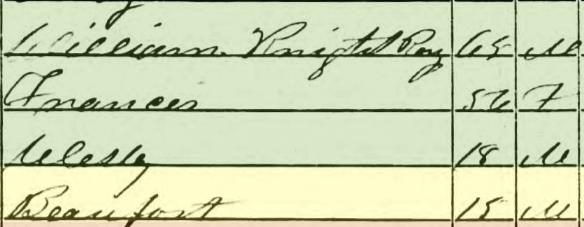 William Knight Roy 65 M
Frances 56 F
Wesly 18 M
Beaufort 15 M